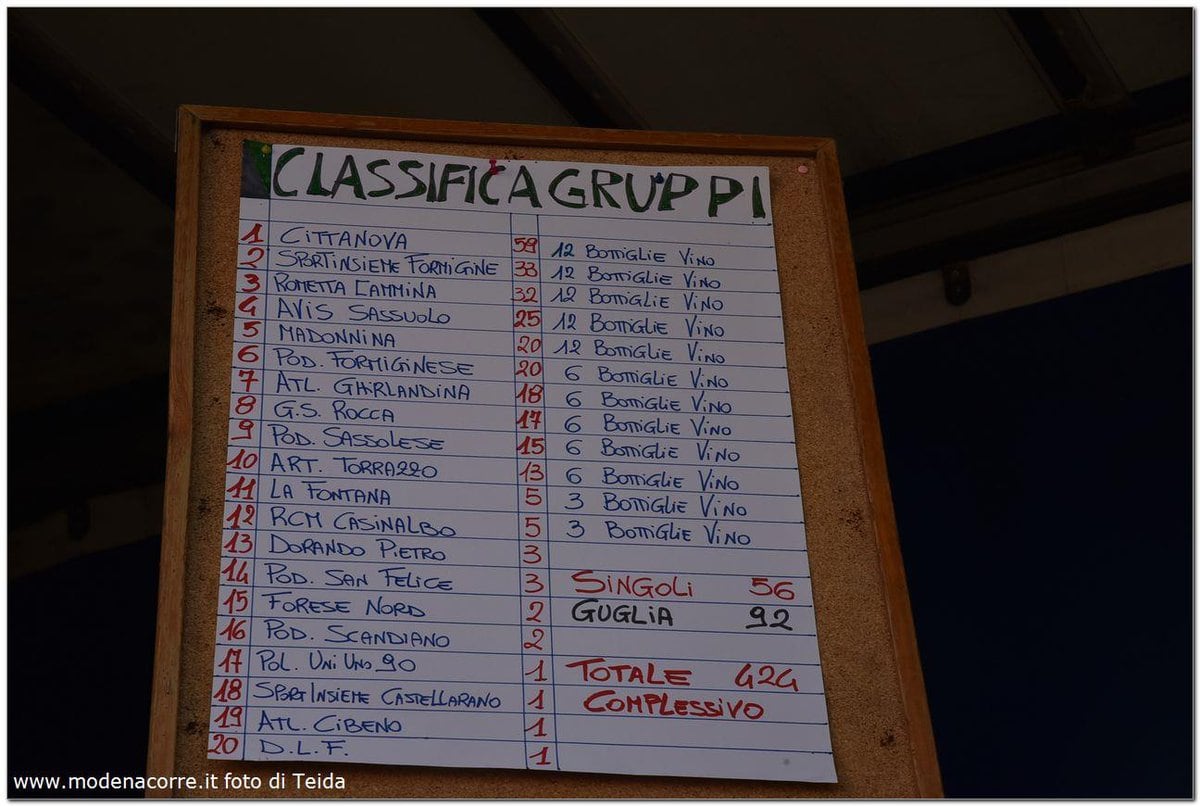 CLASSIFICA GRUPPI
1 CITTANOVA 59 12 BOTTIGLIE VINO
2 SPORTINSIEME FORMIGINE 38 12 BOTTIGLIE VINO
3 ROMETTA CAMMINA 32 12 BOTTIGLIE VINO
4 AVIS SASSUOLO 25 12 BOTTIGLIE VINO
5 MADONNINA 20 12 BOTTIGLIE VINO
6 POD. FORMIGINESE 20 6 BOTTIGLIE VINO
7 ATL. GHIRLANDINA 18 6 BOTTIGLIE VINO
8 G.S. ROCCA 17 6 BOTTIGLIE VINO
9 POD. SASSOLESE 15 6 BOTTIGLIE VINO
10 ART. TORRAZZO 13 6 BOTTIGLIE VINO
11 LA FONTANA 5 3 BOTTIGLIE VINO
12 RCM CASINALBO 5 3 BOTTIGLIE VINO
13 DORANDO PIETRO 3
14 POD. SAN FELICE 3 SINGOLI 56
15 FORESE NORD 2 GUGLIA 92
16 POD. SCANDIANO 2
17 POL. UNI UNO 90 1 TOTALE 424
18 SPORTINSIEME CASTELLARANO 1 COMPLESSIVO
19 ATL. CIBENO 1
20 D.L.F. 1
www.modenacorre.it foto di Teida